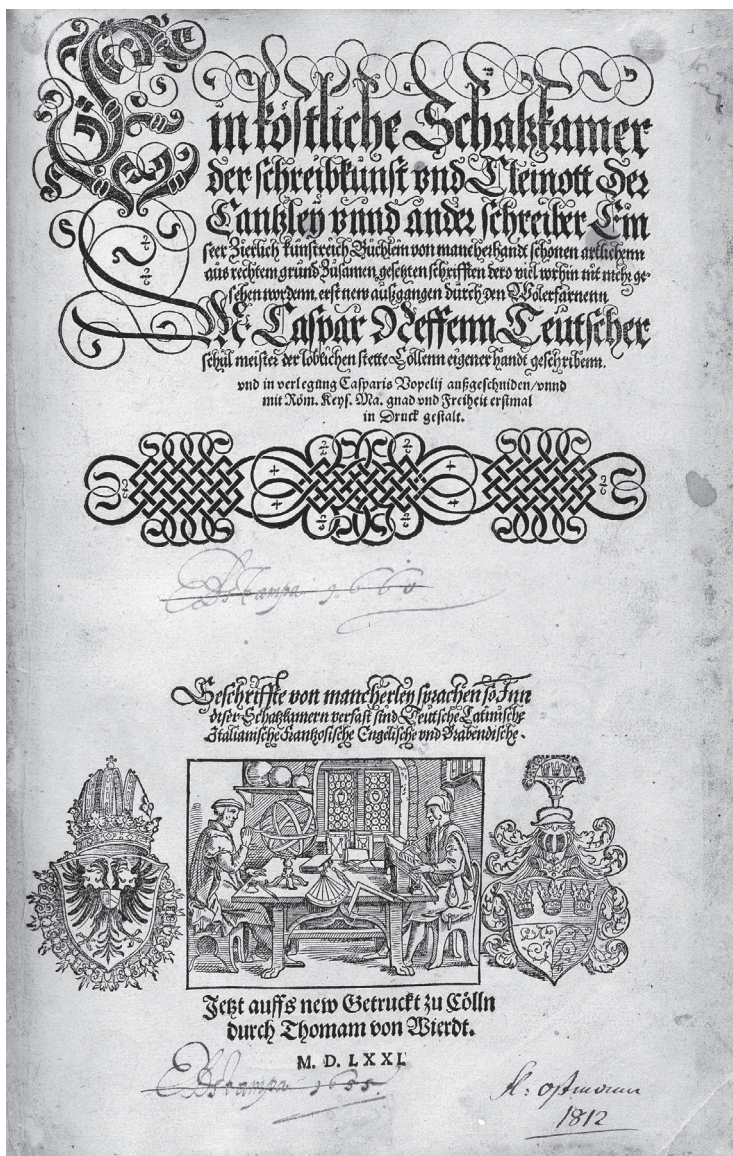 Ein köstliche Schatzkamer
der schreibkunst vnd Cleinott der
Cantzley vnnd ander schreiber Ein
seer Zierlich künstreich Büchlein von mancherhandt schonen artlichenn
aus rechtem grund Züsamen gesetzten schrifften dero viel vorhin nit mehr ge-
sehen wordenn. erst new außgangen durch den Wolerfarnenn
M. Caspar Neffenn Teutscher
schül meister der loblichen stette Cöllenn eigener handt geschribenn.
vnd in verlegüng Casparis Vopelij außgeschniden/vnnd
mit Röm. Keys. Ma. gnad vnd Freiheit erstmal
in Druck gestalt.
1660
Geschriffte von mancherley sprachen so Inn
diser Schatzkamern verfast sind Teütsche Latinische
Italianische Frantzosische Engelische vnd Brabendische.
Jetzt auffs new Getruckt zu Cölln
durch Thomam von Wierdt.
M. D. LXXI.
1655
1812